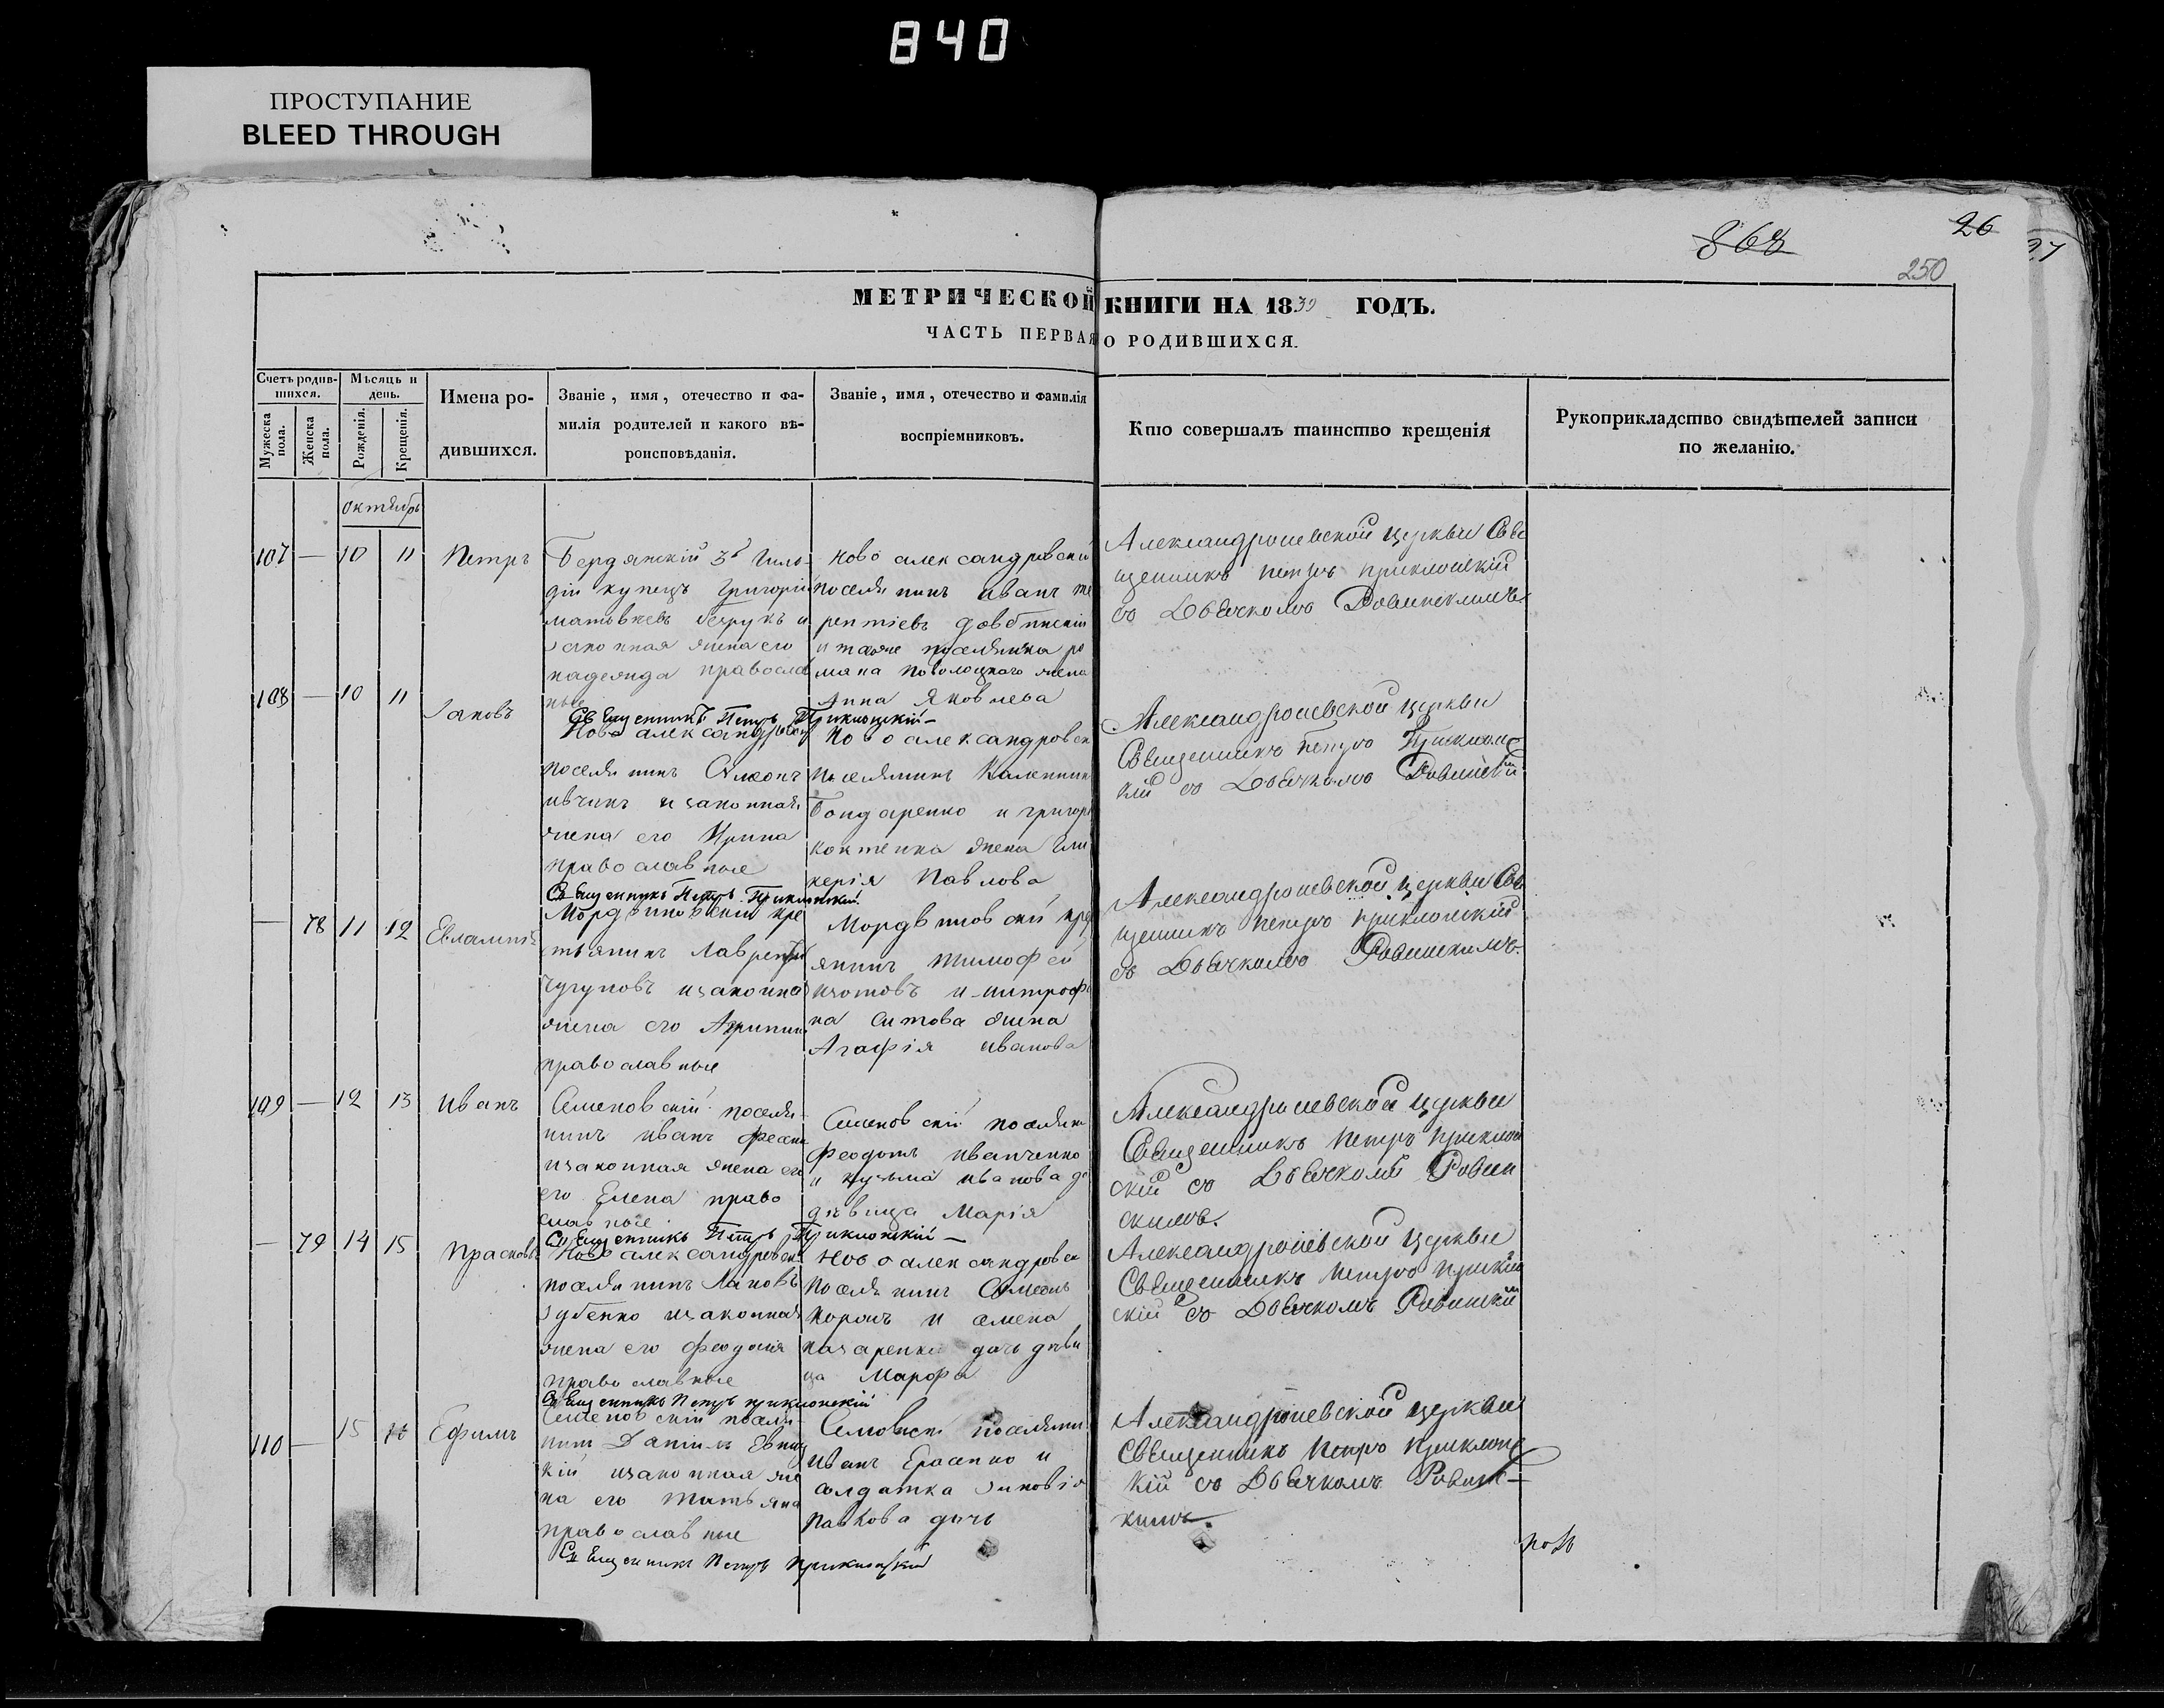 840
ПРОСТУПАНИЕ
BLEED THROUGH
868
26
27
250
МЕТРИЧЕСКОЙ КНИГИ НА 1839 ГОДЪ.
ЧАСТЬ ПЕРВАЯ О РОДИВШИХСЯ.
Счетъ родив-
шихся.
Мужеска
пола.
Женска
пола.
Мѣсяцъ и
день.
Рожденія.
Крещенія.
Имена ро-
дившихся.
Званіе, имя, отечество и фа-
милія родителей и какого вѣ-
роисповѣданія.
Званіе, имя, отечество и фамилія
воспріемниковъ.
Кто совершалъ таинство крещенія
Рукоприкладство свидѣтелей записи
по желанію.
октябрь
107 — 10 11 Петръ
Бердянскій 3й Гиль-
діи купецъ Григорій
матвѣевъ и
законная жена его
надежда православ
ные
Ново александровскій
поселянинъ иванъ те
рентіевъ довбинскій
и также поселянина ро
мана поволоцкаго жена
Анна Яковлева
Священникъ Петръ Приклонскій —
Александроневской церкви Свя
щенникъ петръ приклонскій
съ Дьячкомъ Ровинскимъ
108 — 10 11 Іаковъ
Ново александровскій
поселянинъ Симеонъ
ивчинъ и законная
жена его Ирина
православные
Ново александровск
поселянинъ Калениникъ
Бондаренко и григорі
коктенка жена Гли
керія Павлова
Священникъ Петръ Приклонскій
Александроневской церкви
Священникъ петръ Приклонс
кій съ Дьячкомъ Ровинскимъ
— 78 11 12 Евлампія
Мордвиновскій кре
стьянинъ Лаврентій
Чугуновъ и законная
жена его Агрипина
православные
Мордвиновскій кре
янинъ тимофей
изотовъ и митроф
на ситова жена
Агафія иванова
Александроневской церкви Свя
щенникъ петръ приклонскій
съ Дьячкомъ Ровинскимъ.
109 — 12 13 Иванъ
Семеновскій поселя-
нинъ иванъ
и законная жена его
его Елена право
славные
Семеновскій поселянин
феодотъ иванченко
и кузьма иванова до
дѣвица Марія
Священникъ Петръ Приклонскій —
Александроневской церкви
Священникъ петръ приклон
скій съ Дьячкомъ Ровин
скимъ.
— 79 14 15 Прасковья
Ново александровскій
поселянинъ Іаковъ
зубенко и законная
жена его феодосія
православные
Ново александровск
поселянинъ Симеонъ
корож и семена
назаренка дочь дѣви
ца Марфа
Священникъ Петръ приклонскій
Александроневской церкви
Священникъ петръ приклон
скій съ Дьячкомъ Ровинскимъ
110 — 15 16 Ефимъ
Семеновскій поселя-
нинъ Даніилъ
кій и законная же
на его татьяна
православные
поселянин
иванъ Ерасенко и
солдатка зиновія
павлова дочь
Священникъ Петръ Приклонскій
Александроневской церкви
Священникъ Петръ приклонс
кій съ Дьячкомъ Ровинс—
кимъ.